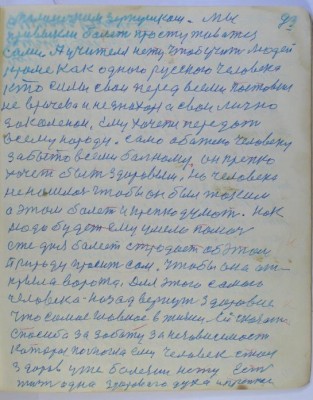 Мы 99
болет простуживаясь
сами. А учителя нету чтобы учить людей
кроме как одного русского человека
кто силы свои перед всеми поставил
не врачева и незнахоря а свои лично
закаленой. Ему хочется передать
всему народу. Само обаженому человеку
забыто всеми больному, он крепко
хочет быть здоровым. Но человека
не нашлось чтобы он был таким
о этом болеть и крепко думать. Как
надо будет ему умело помочь
сие дня болеет страдает об этом
Природу просит сам. Чтобы она от-
крыла ворота. Для этого самого
человека назад вернуть здоровие
что самое главное в жизни. Ей сказать
спасибо за заботу за независимость
которая помогла ему человек стал
здоров уже болезни нету Есть
одна здорового духа